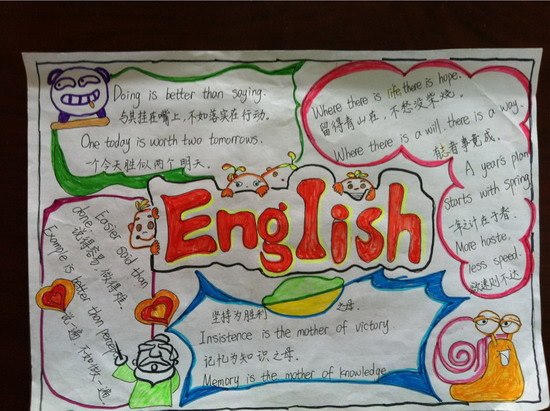 Doing is better than saying.
与其挂在嘴上，不如落实在行动。
One today is worth two tomorrows.
一个今天胜似两个明天。
Where there is life, there is hope.
留得青山在，不愁没柴烧。
Where there is a will, there is a way.
有志者事竟成。
A year's plan
starts with spring
一年之计在于春。
More haste,
less speed.
欲速则不达
English
Easier said than
done.说得容易，做得难。
Example is better than
说一遍，不如做一遍。
坚持为胜利 之母.
Insistence is the mother of victory
记忆为知识之母.
Memory is the mother of knowledge